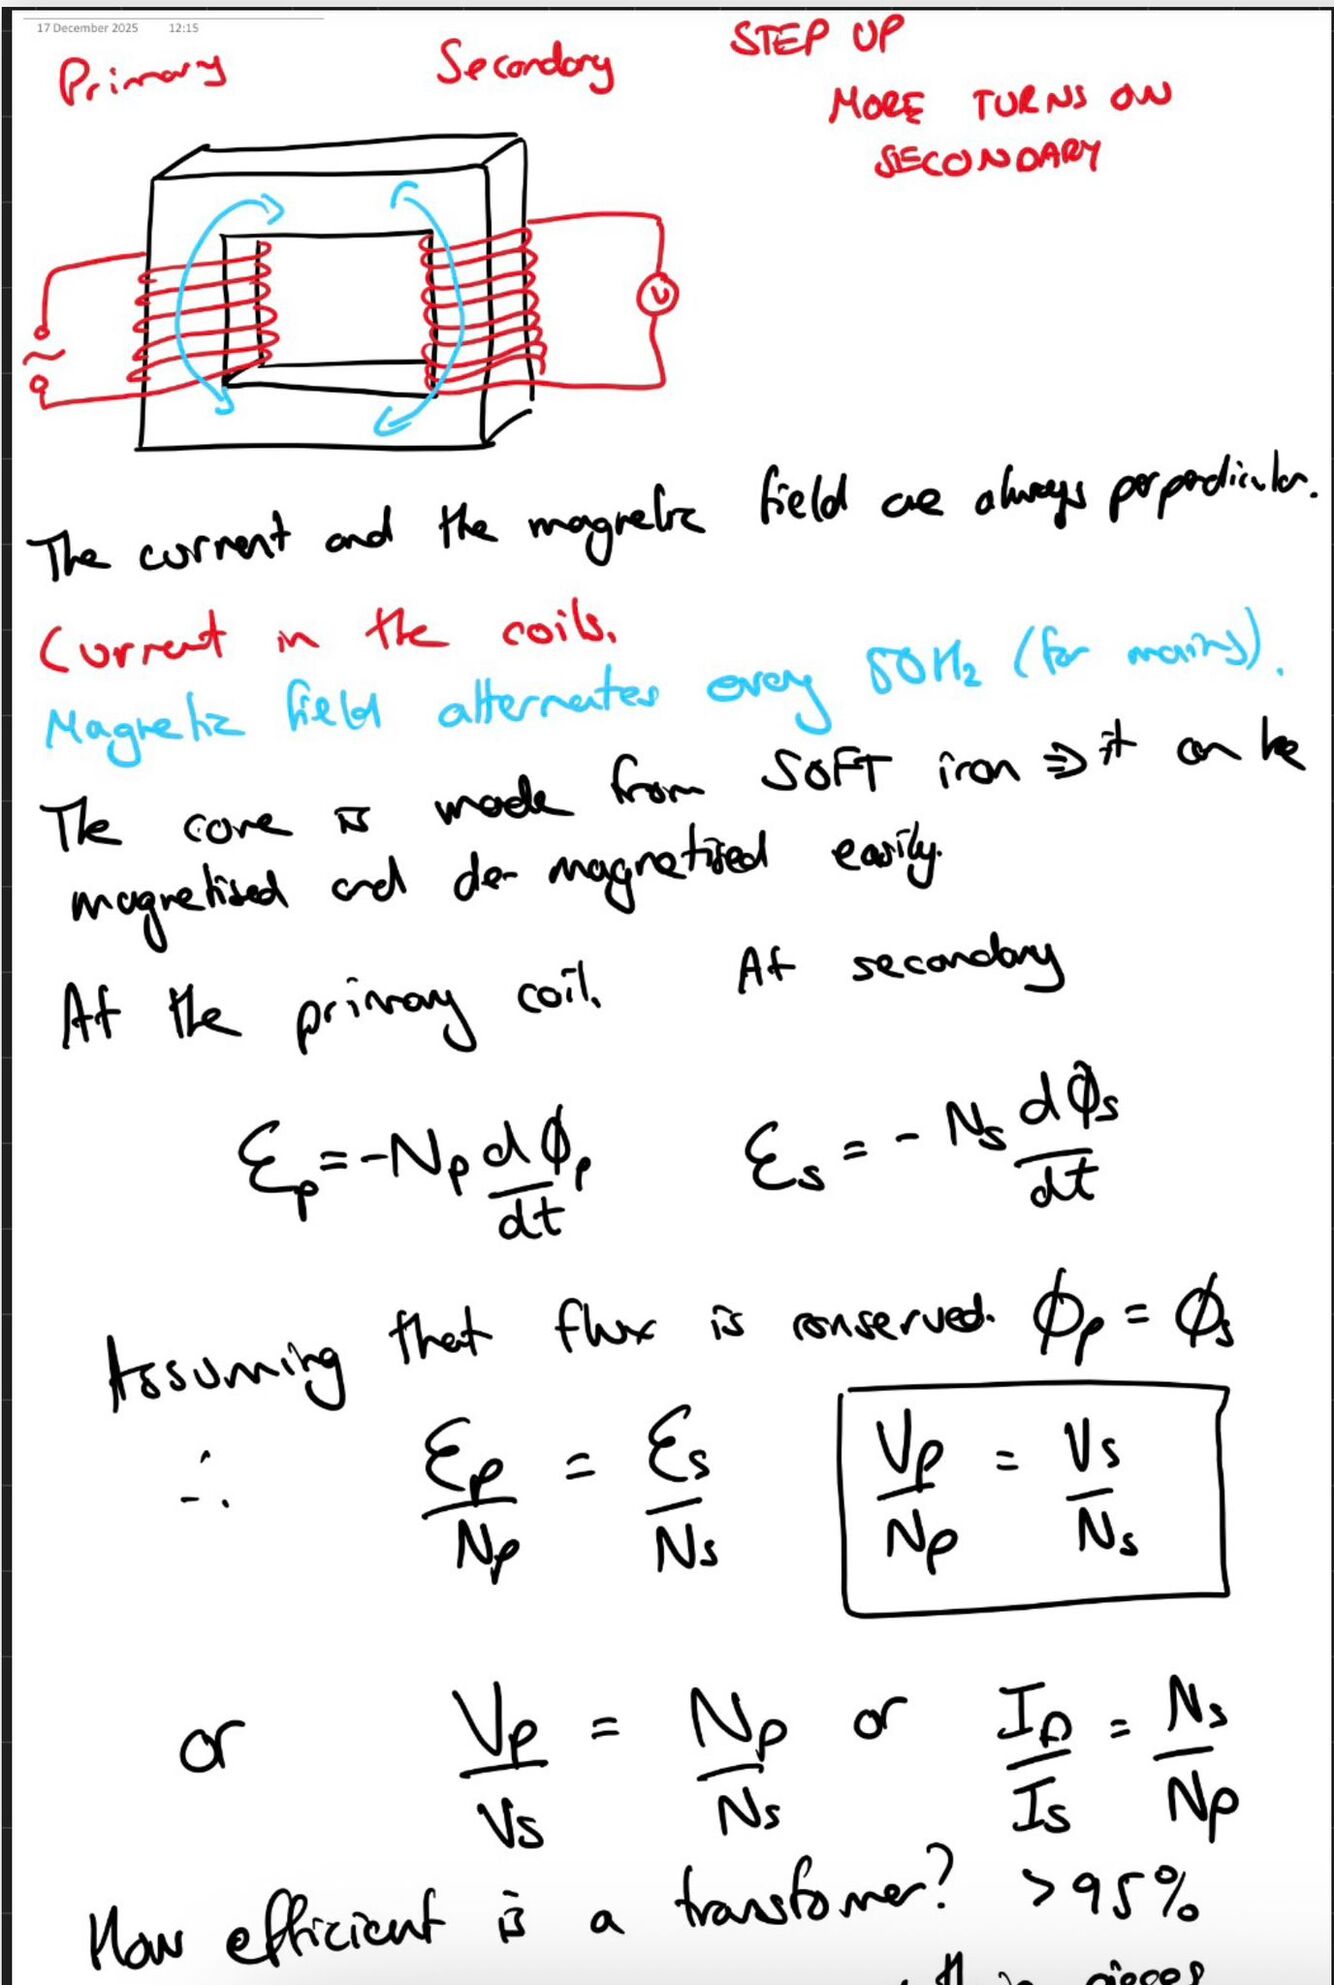 17 December 2025 12:15
Primary Secondary STEP UP
MORE TURNS ON
SECONDARY
~
V
The current and the magnetic field are always perpendicular.
Current in the coils.
Magnetic field alternates every 50Hz (for mains).
The core is made from SOFT iron ⇒ it can be
magnetised and de-magnetised easily.
At the primary coil. At secondary
Ɛp = -Np dϕp/dt Ɛs = -Ns dϕs/dt
Assuming that flux is conserved. ϕp = ϕs
∴ Ɛp/Np = Ɛs/Ns Vp/Np = Vs/Ns
or Vp/Vs = Np/Ns or Ip/Is = Ns/Np
How efficient is a transfomer? >95%
pieces